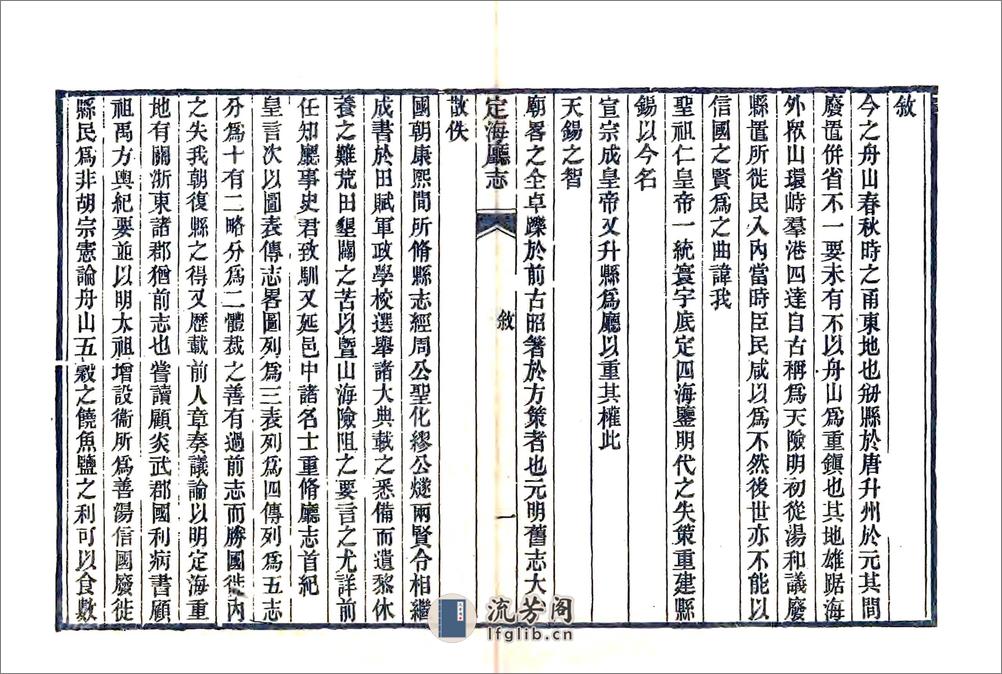 敘
今之舟山春秋時之甬東地也刱縣於唐升州於元其間
廢置併省不一要未有不以舟山爲重鎭也其地雄踞海
外衆山環峙羣港四達自古稱爲天險明初從湯和議廢
縣置所徙民入內當時臣民咸以爲不然後世亦不能以
信國之賢爲之曲諱我
聖祖仁皇帝一統寰宇底定四海鑒明代之失策重建縣
錫以今名
宣宗成皇帝又升縣爲廳以重其權此
天錫之智
廟畧之全卓躒於前古昭箸於方策者也元明舊志大
定海廳志
敘
一
散佚
國朝康熙間所脩縣志經周公聖化繆公燧兩賢令相繼
成書於田賦軍政學校選舉諸大典載之悉備而遺黎休
養之難荒田墾闢之苦以曁山海險阻之要言之尤詳前
任知廳事史君致馴又延邑中諸名士重脩廳志首紀
皇言次以圖表傳志畧圖列爲三表列爲四傳列爲五志
分爲十有二略分爲二體裁之善有過前志而勝國徙內
之失我朝復縣之得又歷載前人章奏議論以明定海重
地有關浙東諸郡猶前志也嘗讀顧炎武郡國利病書顧
祖禹方輿紀要並以明太祖增設衞所爲善湯信國廢徙
縣民爲非胡宗憲論舟山五穀之饒魚鹽之利可以食數
流芳阁
lfglib.cn